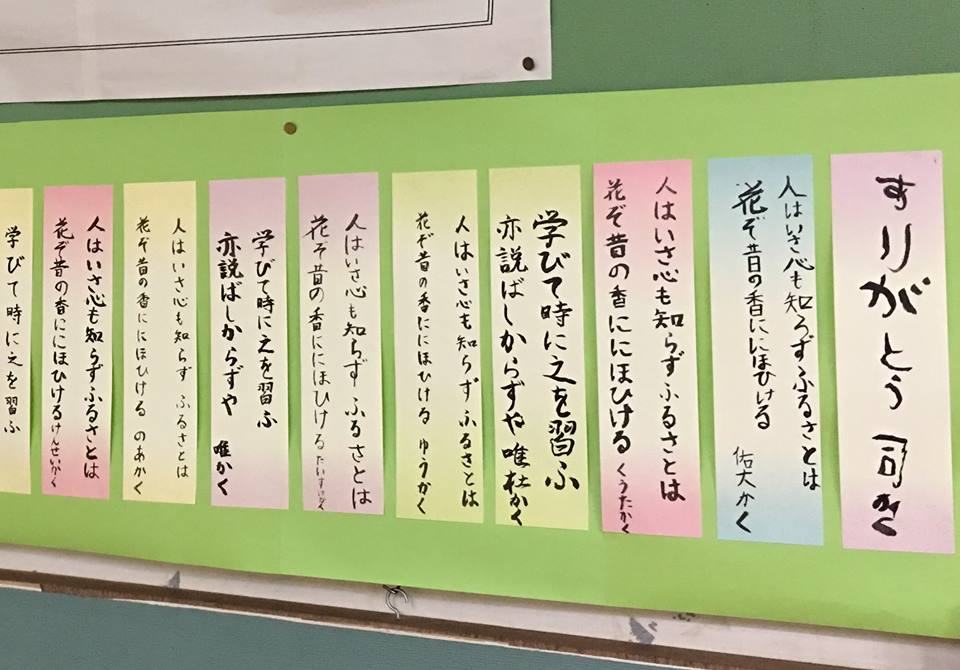 すりがとう 司かく
人はいさ心も知らずふるさとは
花ぞ昔の香ににほひける 佑大かく
人はいさ心も知らずふるさとは
花ぞ昔の香ににほひける くうたかく
学びて時に之を習ふ
亦説ばしからずや 唯杜かく
人はいさ心も知らず ふるさとは
花ぞ昔の香ににほひける ゆうかく
人はいさ心も知らず ふるさとは
花ぞ昔の香ににほひける
学びて時に之を習ふ
亦説ばしからずや 唯かく
人はいさ心も知らず ふるさとは
花ぞ昔の香ににほひける のあかく
人はいさ心も知らずふるさとは
花ぞ昔の香ににほひける けんせいかく
学びて時に之を習ふ